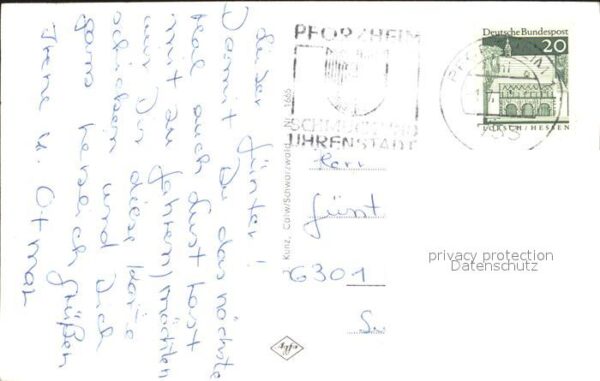 Lieber Günter!
Damit Du das nächste
Mal auch Lust hast
mit zu fahren, möchten
wir Dir diese Karte
schicken und Dich
ganz herzlich grüßen
Irene u. Otmar
PFORZHEIM
SCHMUCK UND
UHRENSTADT
Deutsche Bundespost
20
LORSCH/HESSEN
Kunz, Calw/Schwarzwald
Herr
6301
privacy protection
Datenschutz